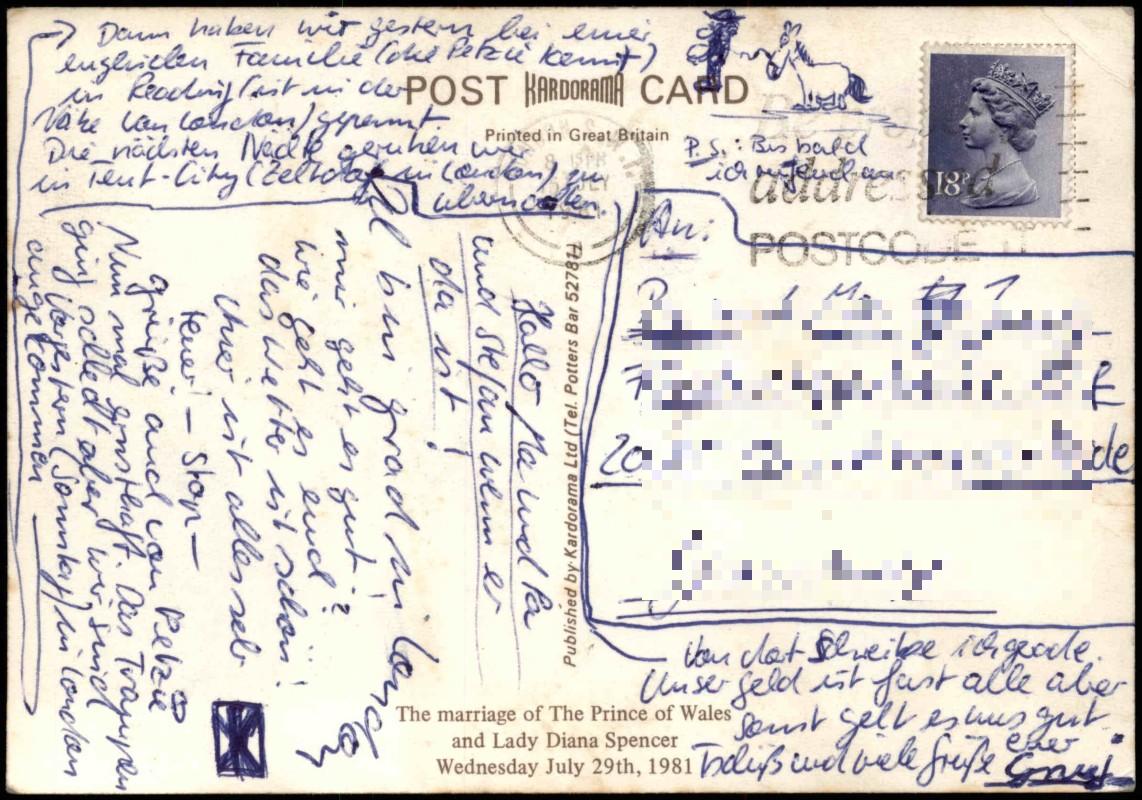 Hallo Ma und Pa
und Stefan wenn er
da ist!
bin grad in London
mir geht es gut
wie geht es euch?
das Wetter ist schön!
aber ist alles sehr
teuer! – Stop –
Grüße auch von Petzie
Nun mal ernsthaft. Das Trampen
ging schlecht aber wir sind
vorgestern (Sonntag) in London
angekommen
→ Dann haben wir gestern bei einer
englischen Familie (die Petzie kennt)
in Reading (ist in der
Nähe von London) gepennt
Die nächsten Nächte geruhen wir
in Tent-City (Zeltlager in London) zu
übernachten.
Von dort schreibe ich gerade.
Unser geld ist fast alle aber
sonst geht es uns gut
Tschüß und viele Grüße
euer
P.S.: Bis bald
ich
An:
20
de
POST KARDORAMA CARD
Printed in Great Britain
18P
addressed
POSTCODE
Published by Kardorama Ltd (Tel. Potters Bar 52781)
The marriage of The Prince of Wales
and Lady Diana Spencer
Wednesday July 29th, 1981